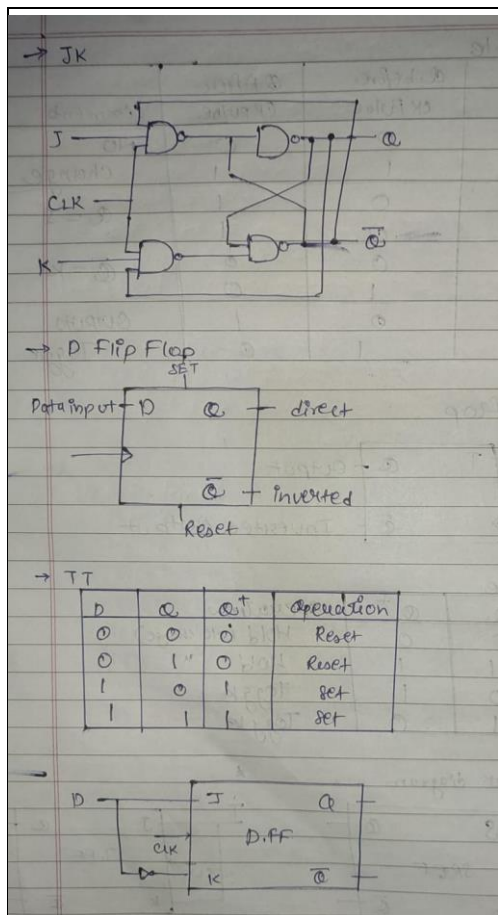 → JK
J
Q
CLK
K
Q̅
→ D Flip Flop
SET
Data input D Q direct
Q̅ inverted
Reset
→ TT
D Q Q⁺ Operation
0 0 0 Reset
0 1 0 Reset
1 0 1 Set
1 1 1 Set
D J Q
CLK D.FF
K Q̅